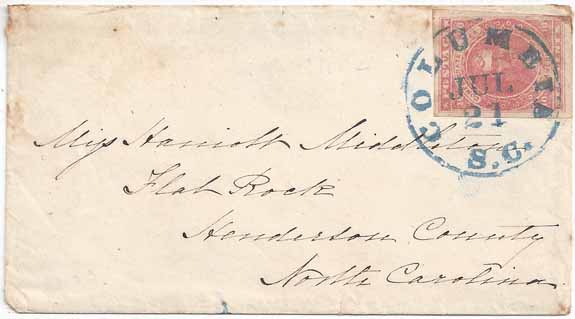 COLUMBIA
JUL
21
S.C.
Miss Harriott Middleton
Flat Rock
Henderson County
North Carolina